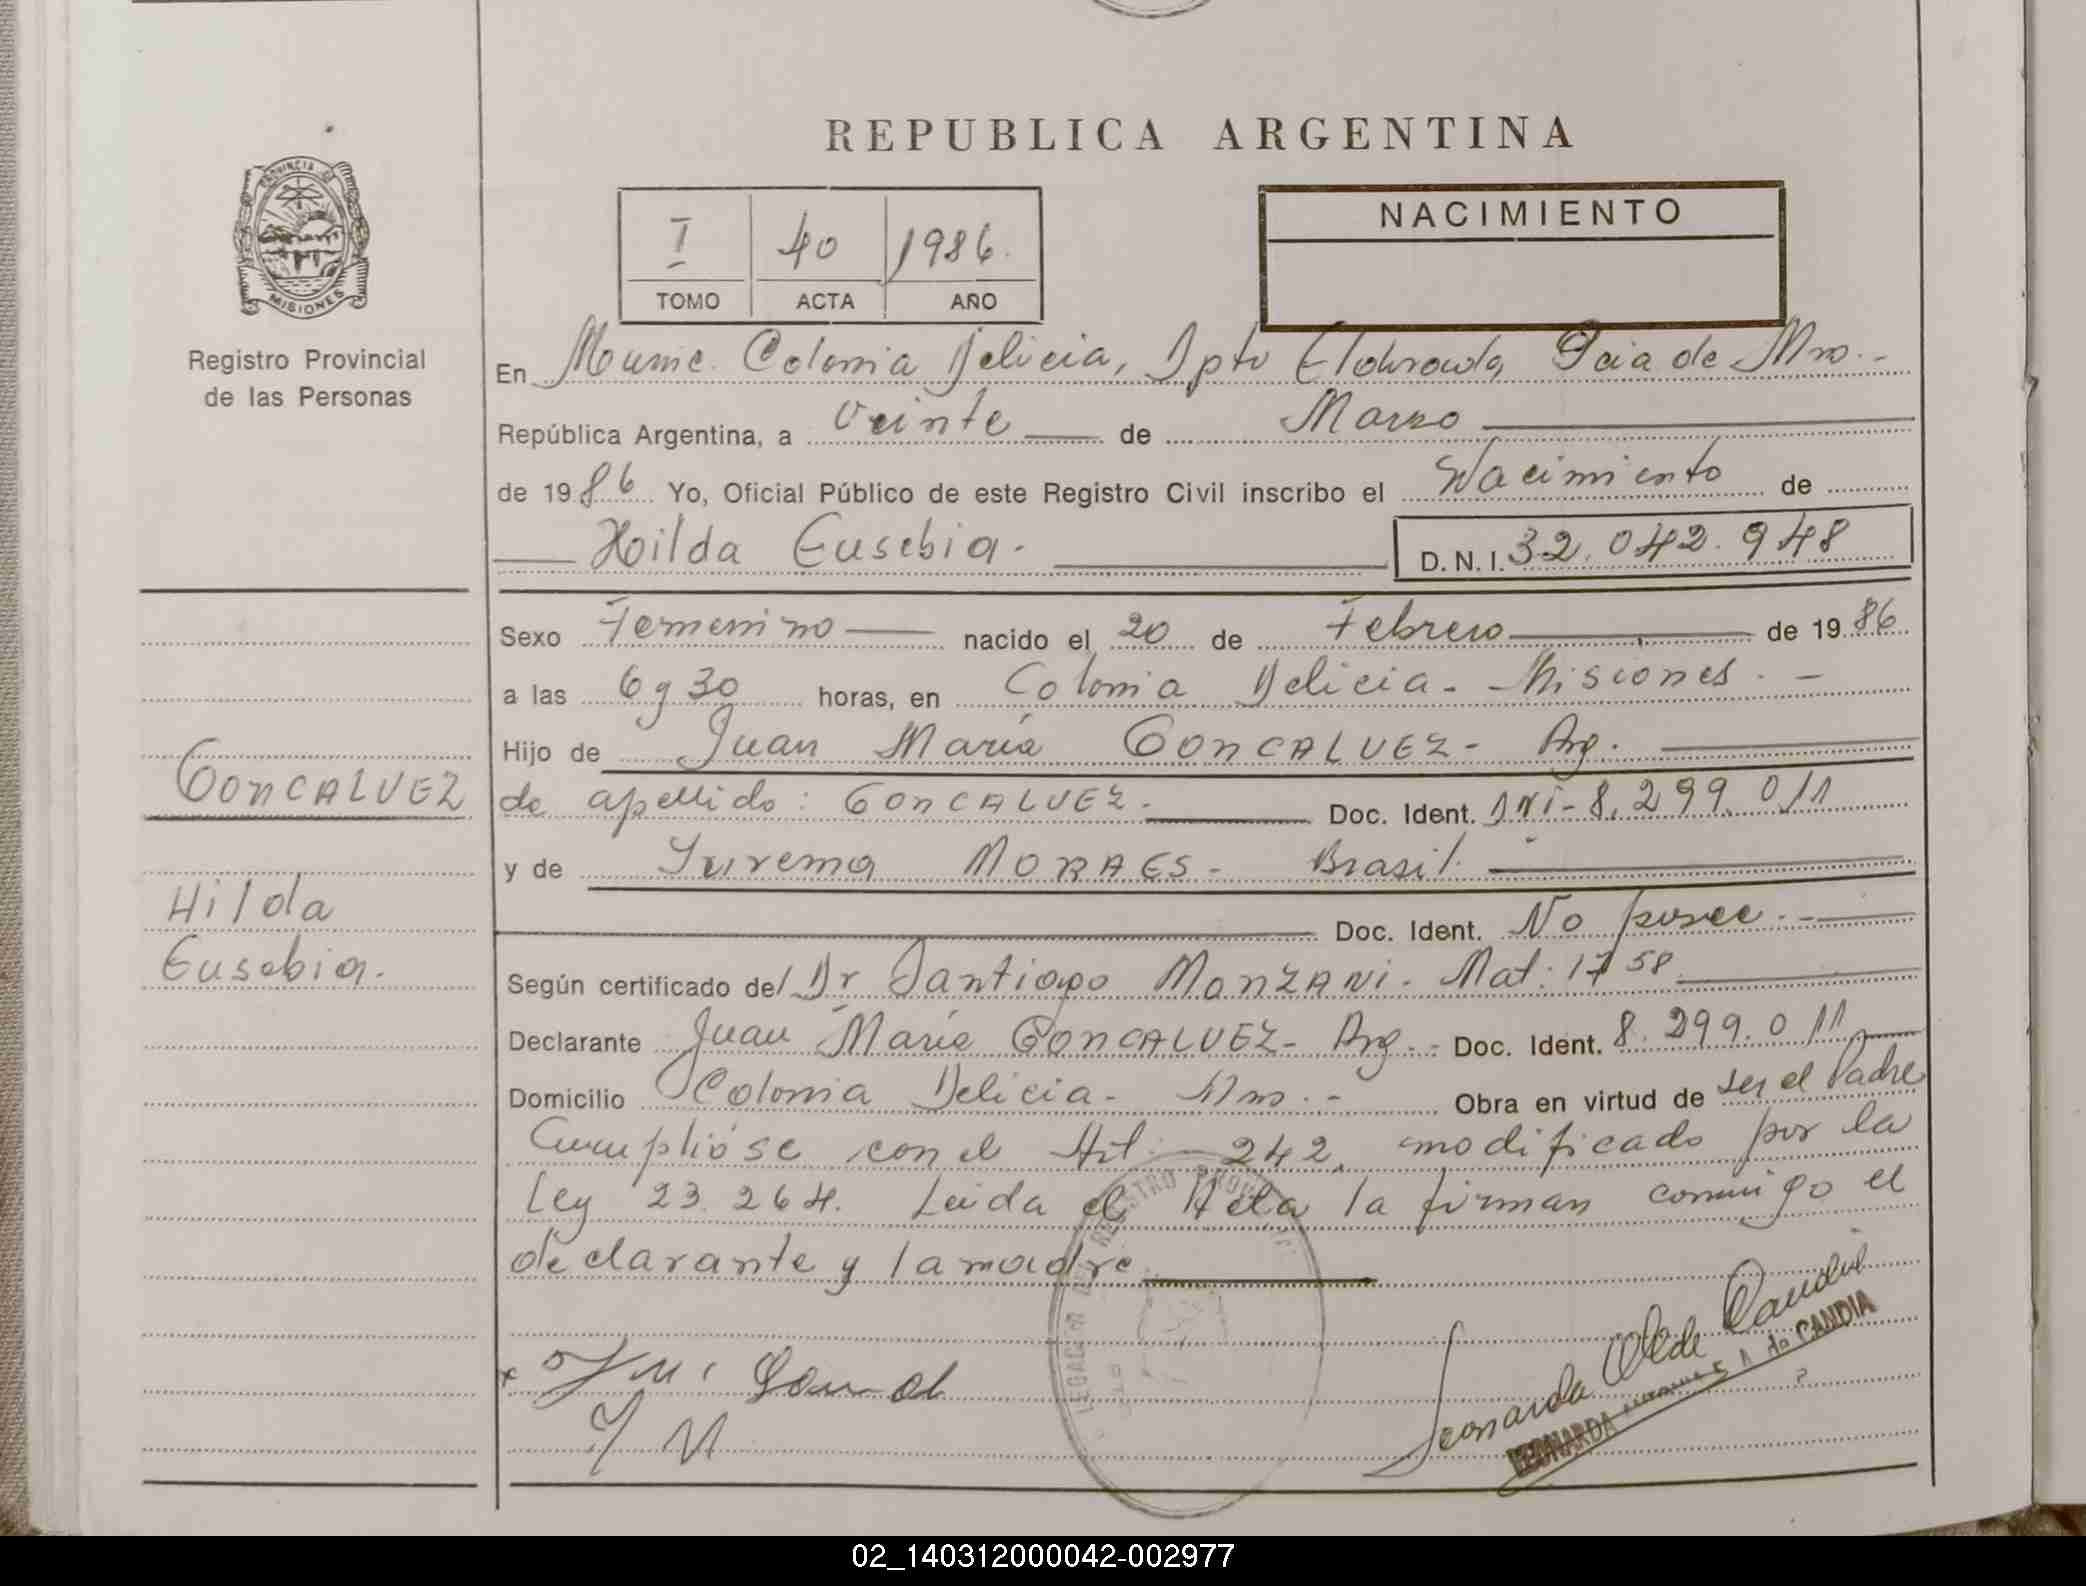 REPUBLICA ARGENTINA
PROVINCIA DE
MISIONES
Registro Provincial
de las Personas
I 40 1986.
TOMO ACTA AÑO
NACIMIENTO
En Munic. Colonia Delicia, Dpto Eldorado, Pcia de Mnes.-
República Argentina, a veinte de Marzo
de 1986 Yo, Oficial Público de este Registro Civil inscribo el Nacimiento de
Hilda Eusebia. D. N. I. 32.042.948
Sexo Femenino nacido el 20 de Febrero de 1986
a las 6 y 30 horas, en Colonia Delicia - Misiones. -
Hijo de Juan María GONCALVEZ - Arg.
GONCALVEZ
de apellido: GONCALVEZ. Doc. Ident. DNI - 8.299.011
y de MORAES - Brasil.
Hilda
Eusebia.
Doc. Ident. No posee. -
Según certificado del Dr Santiago MONZANI - Mat: 1758
Declarante Juan María GONCALVEZ - Arg. - Doc. Ident. 8.299.011
Domicilio Colonia Delicia - Mnes. - Obra en virtud de ser el Padre
Cumplióse con el Art: 242, modificado por la
Ley 23.264. Leida el Acta la firman conmigo el
declarante y la madre
REGISTRO
Leonarda de Candia
LEONARDA A de CANDIA
02_140312000042-002977